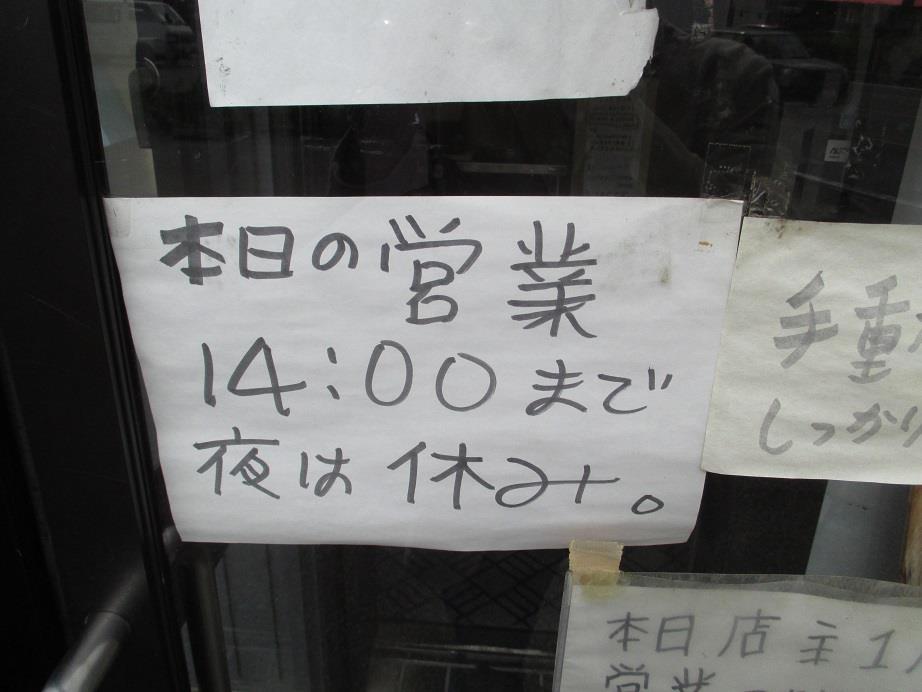 本日の営業
14:00まで
夜は休み。
手重
しっかり
本日店主1
営業